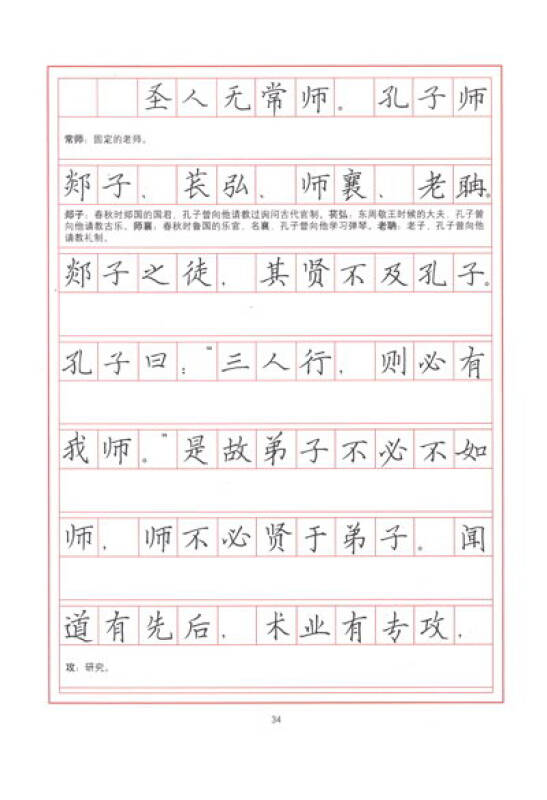 圣人无常师。孔子师
常师：固定的老师。
郯子、苌弘、师襄、老聃。
郯子：春秋时郯国的国君，孔子曾向他请教过询问古代官制。苌弘：东周敬王时候的大夫，孔子曾
向他请教古乐。师襄：春秋时鲁国的乐官，名襄，孔子曾向他学习弹琴。老聃：老子，孔子曾向他
请教礼制。
郯子之徒，其贤不及孔子。
孔子曰：“三人行，则必有
我师。”是故弟子不必不如
师，师不必贤于弟子。闻
道有先后，术业有专攻，
攻：研究。
34